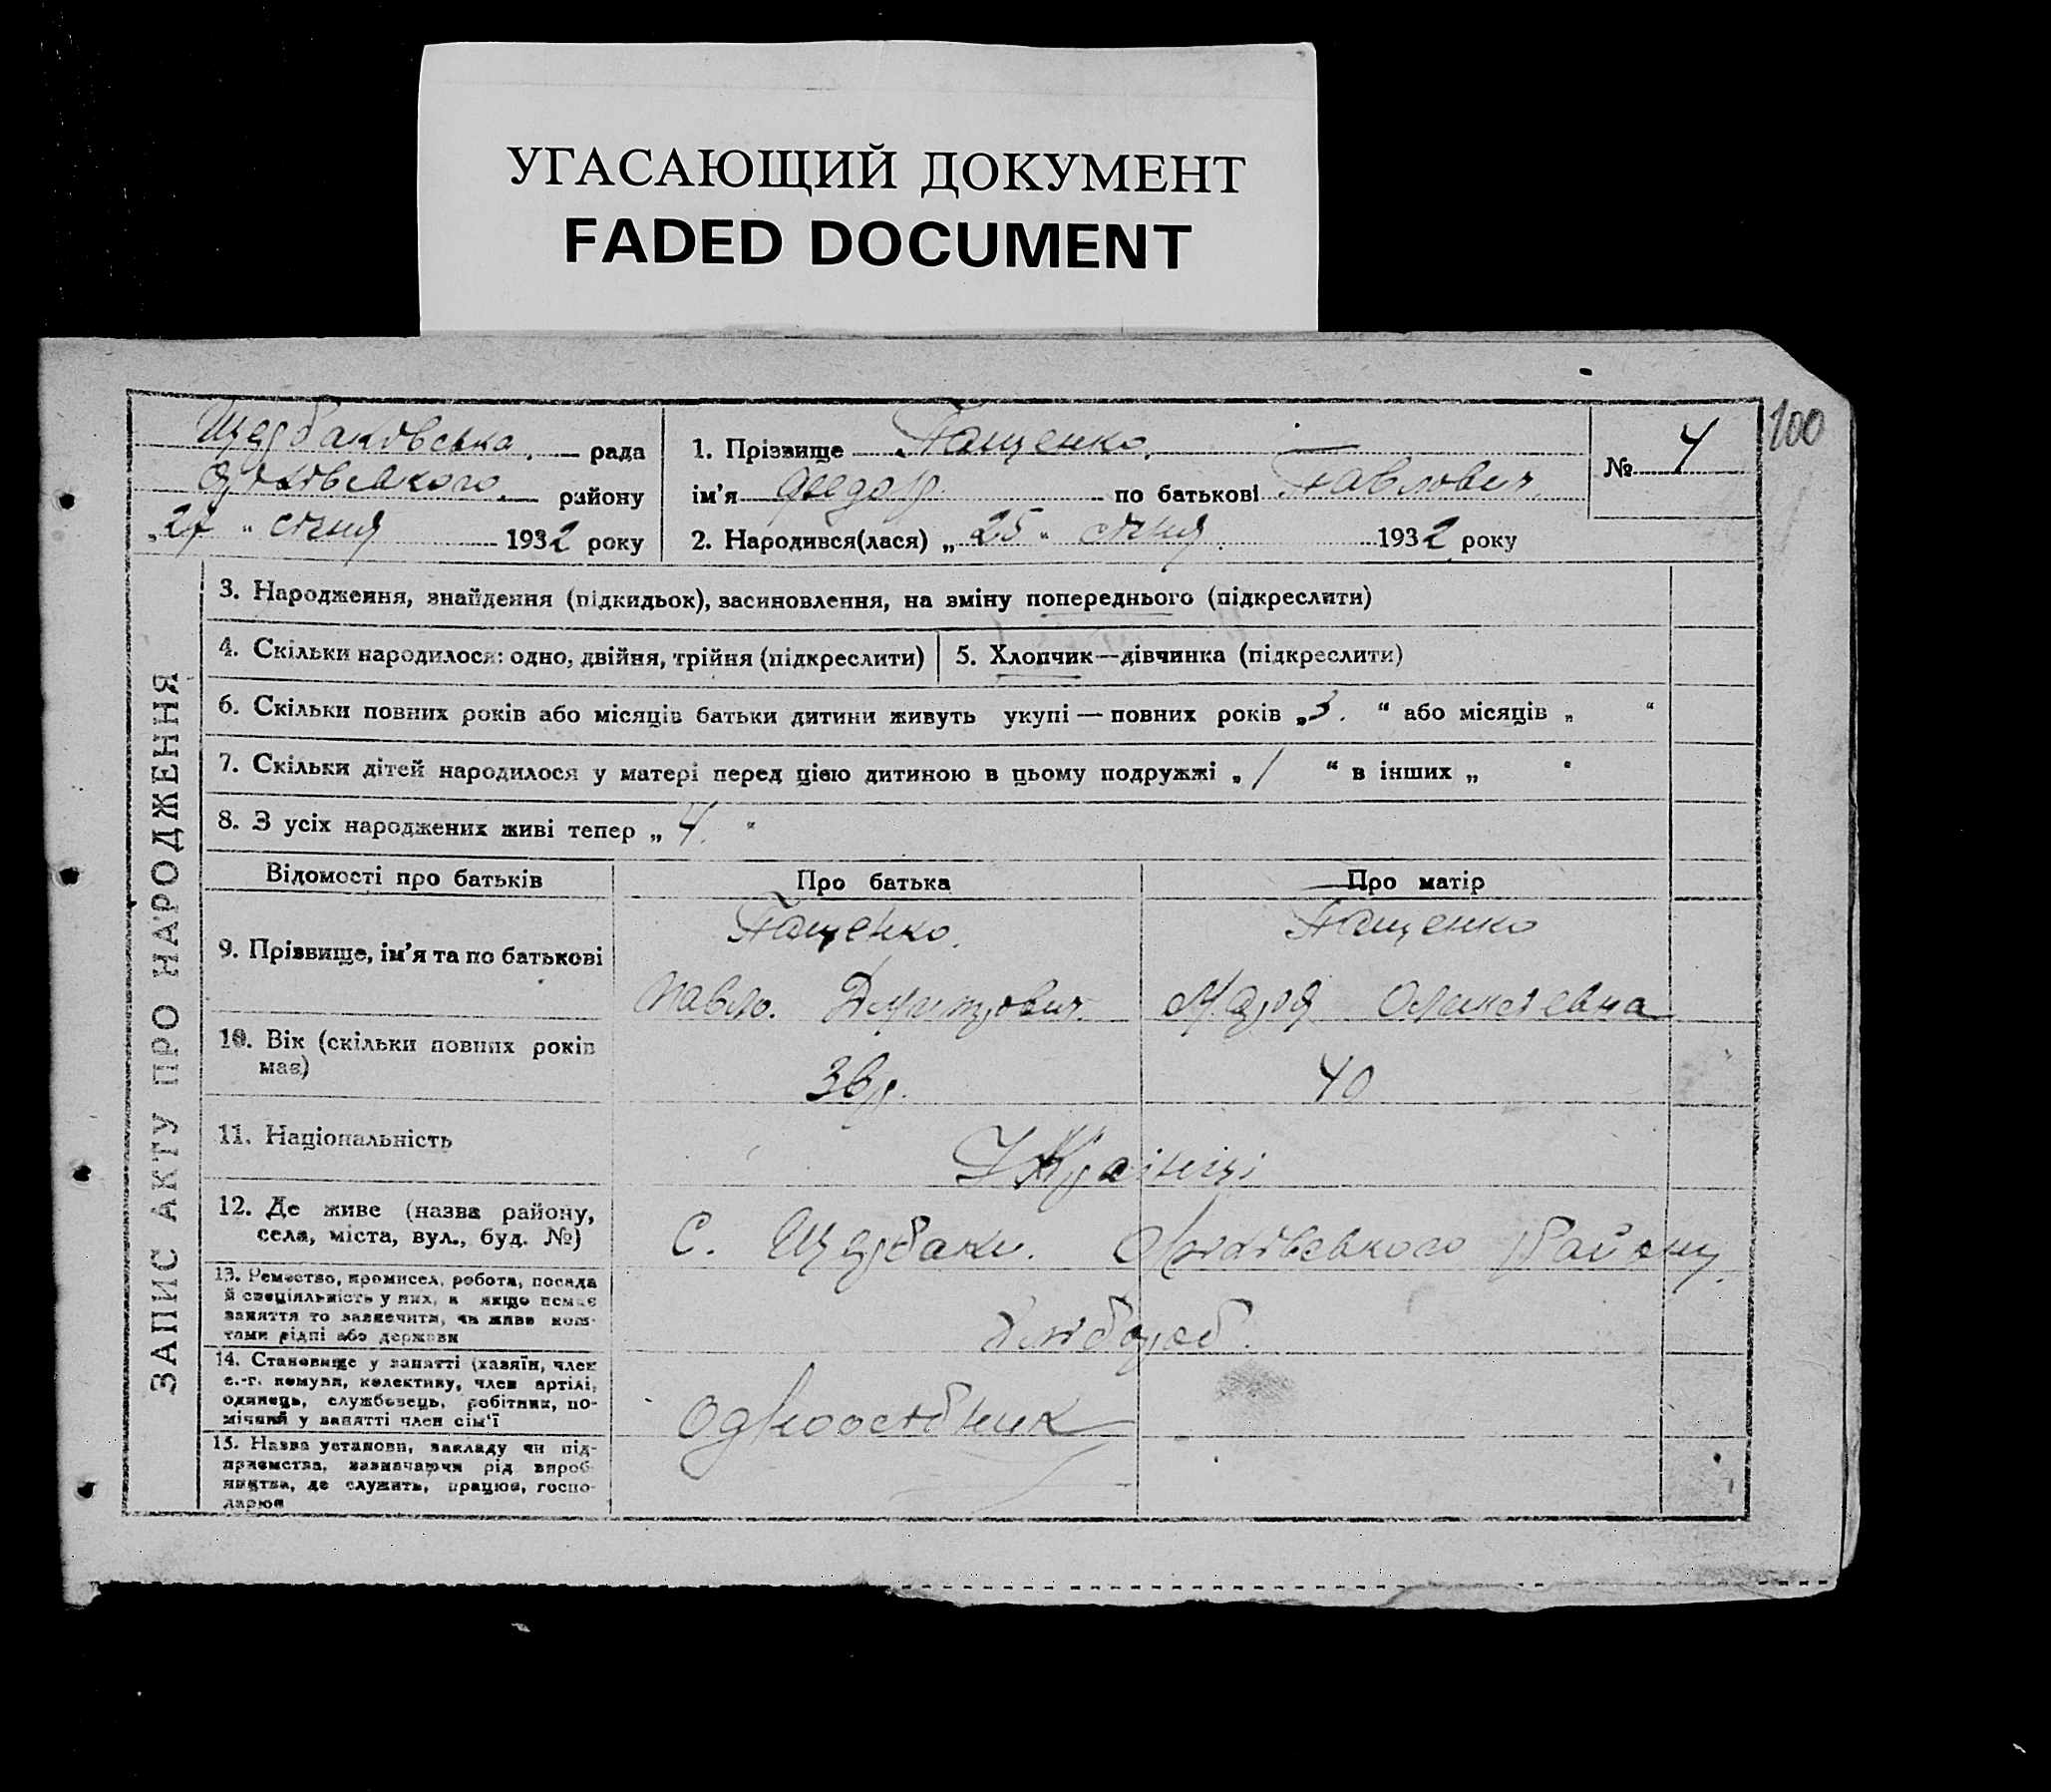 УГАСАЮЩИЙ ДОКУМЕНТ
FADED DOCUMENT
100
Щербаковська рада
району
„27“ січня 1932 року
1. Прізвище Пащенко
ім'я Федор по батькові Павлович
2. Народився(лася) „25“ січня 1932 року
№ 4
ЗАПИС АКТУ ПРО НАРОДЖЕННЯ
3. Народження, знайдення (підкидьок), засиновлення, на зміну попереднього (підкреслити)
4. Скільки народилося: одно, двійня, трійня (підкреслити)
5. Хлопчик—дівчинка (підкреслити)
6. Скільки повних років або місяців батьки дитини живуть укупі — повних років „3.“ або місяців „ “
7. Скільки дітей народилося у матері перед цією дитиною в цьому подружжі „1“ в інших „ “
8. З усіх народжених живі тепер „4.“
Відомості про батьків
Про батька
Про матір
9. Прізвище, ім'я та по батькові
Пащенко
Павло Дмитрович
Пащенко
Марія
10. Вік (скільки повних років
має)
36 р.
40
11. Національність
Українці
12. Де живе (назва району,
села, міста, вул., буд. №)
С. Щербаки. району
13. Ремество, промисел, робота, посада
й спеціяльність у них, а якщо немає
заняття то зазначити, чи живе кош-
тами рідні або держави
хлібороб
14. Становище у занятті (хазяїн, член
с.-г. комуни, колективу, член артілі,
одинець, службовець, робітник, по-
мічний у занятті член сім'ї
одноосібник
15. Назва установи, закладу чи під-
приємства, зазначаючи рід вироб-
ництва, де служить, працює, госпо-
дарює